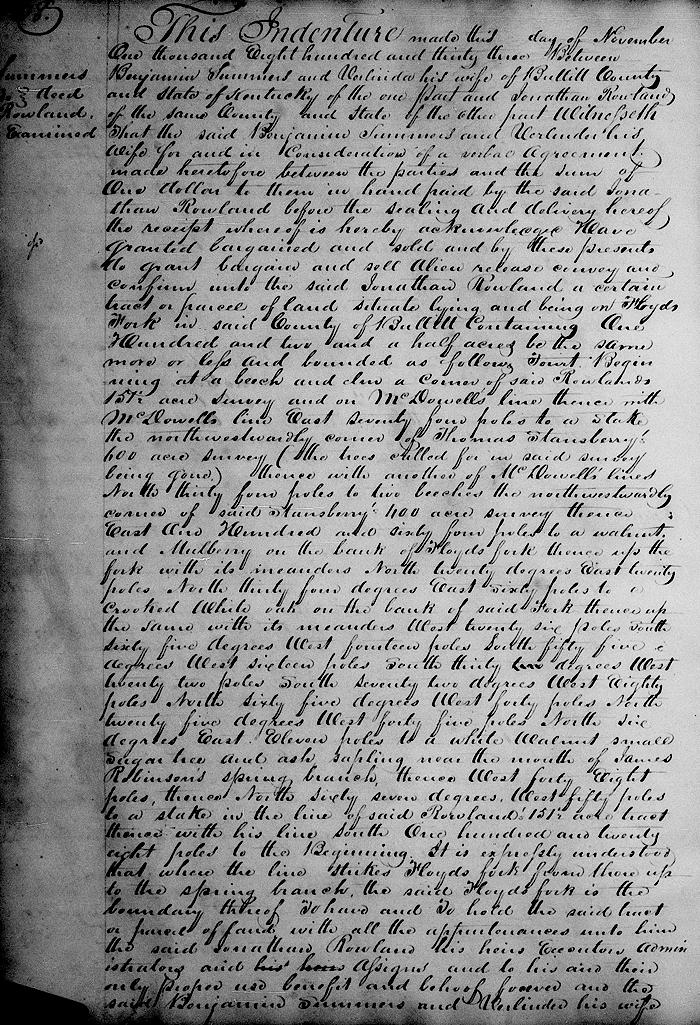 Summers
To } deed
Rowland.
Examined
This Indenture made this day of November
One thousand Eight hundred and thirty three Between
Benjamin Summers and Verlinda his wife of Bullitt County
and State of Kentucky of the one part and Jonathan Rowland
of the same County and State of the other part Witnesseth
That the said Benjamin Summers and Verlinder his
Wife for and in Consideration of a verbal Agreement
made heretofore between the parties and the sum of
One dollar to them in hand paid by the said Jona-
than Rowland before the sealing and delivery hereof
the receipt whereof is hereby acknowledge Have
granted bargained and sold and by these presents
do grant bargain and sell Alien release convey and
confirm unto the said Jonathan Rowland a certain
tract or parcel of land situate lying and being on Floyds
Fork in said County of Bullitt Containing One
Hundred and two and a half acres be the same
more or less and bounded as follows Towit. Begin
ning at a beech and elm a corner of said Rowlands
151½ acre survey and on McDowells line thence with
McDowells line East seventy four poles to a Stake
the northwestwardly corner of Thomas Stansberry's
600 acre survey (the trees called for in said survey
being gone) thence with another of McDowells lines
North thirty four poles to two beeches the northwestwardly
corner of said Stansberry's 400 acre survey thence
East One Hundred and sixty four poles to a walnut
and Mulberry on the bank of Floyds fork thence up the
fork with its meanders North twenty degrees East twenty
poles North thirty four degrees East Sixty poles to a
crooked White oak on the bank of said Fork thence up
the same with its meanders West twenty six poles South
sixty five degrees West fourteen poles South fifty five
degrees West sixteen poles South thirty degrees West
twenty two poles South seventy two degrees West Eighty
poles North sixty five degrees West forty poles North
twenty five degrees West forty five poles North six
degrees East Eleven poles to a white Walnut small
Sugar tree and ash sapling near the mouth of James
Robinson's spring branch, thence West forty Eight
poles, thence North sixty seven degrees, West fifty poles
to a stake in the line of said Rowland's 151½ acre tract
thence with his line South One hundred and twenty
eight poles to the Beginning. It is expressly understood
that where the line strikes Floyds fork from there up
to the spring branch, the said Floyds fork is the
boundary thereof To have and To hold the said tract
or parcel of land with all the appurtenances unto him
the said Jonathan Rowland his heirs Executors Admin
istrators and his heirs Assigns and to his and their
only proper use benefit and behoof forever and the
said Benjamin Summers and Verlinder his wife